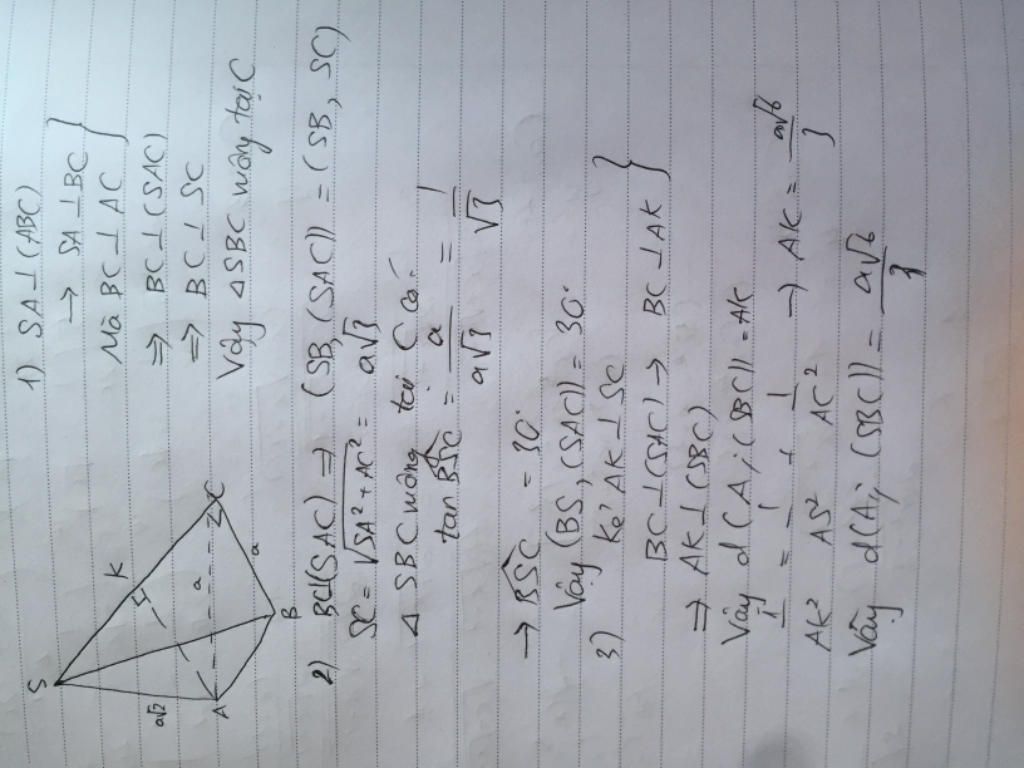 S
K
a√2
a
A
C
a
B
1) SA ⊥ (ABC)
→ SA ⊥ BC }
Mà BC ⊥ AC
⇒ BC ⊥ (SAC)
⇒ BC ⊥ SC
Vậy Δ SBC vuông tại C
2) BC⊥(SAC) ⇒ (SB, (SAC)) = (SB, SC)
SC = √SA² + AC² = a√3
Δ SBC vuông tại C có
tan BSC = a / a√3 = 1 / √3
→ BSC = 30°
Vậy (BS, (SAC)) = 30°
3) Kẻ AK ⊥ SC }
BC ⊥ (SAC) → BC ⊥ AK
⇒ AK ⊥ (SBC)
Vậy d(A; (SBC)) = AK
1 / AK² = 1 / AS² + 1 / AC² → AK = a√6 / 3
Vậy d(A; (SBC)) = a√6 / 3